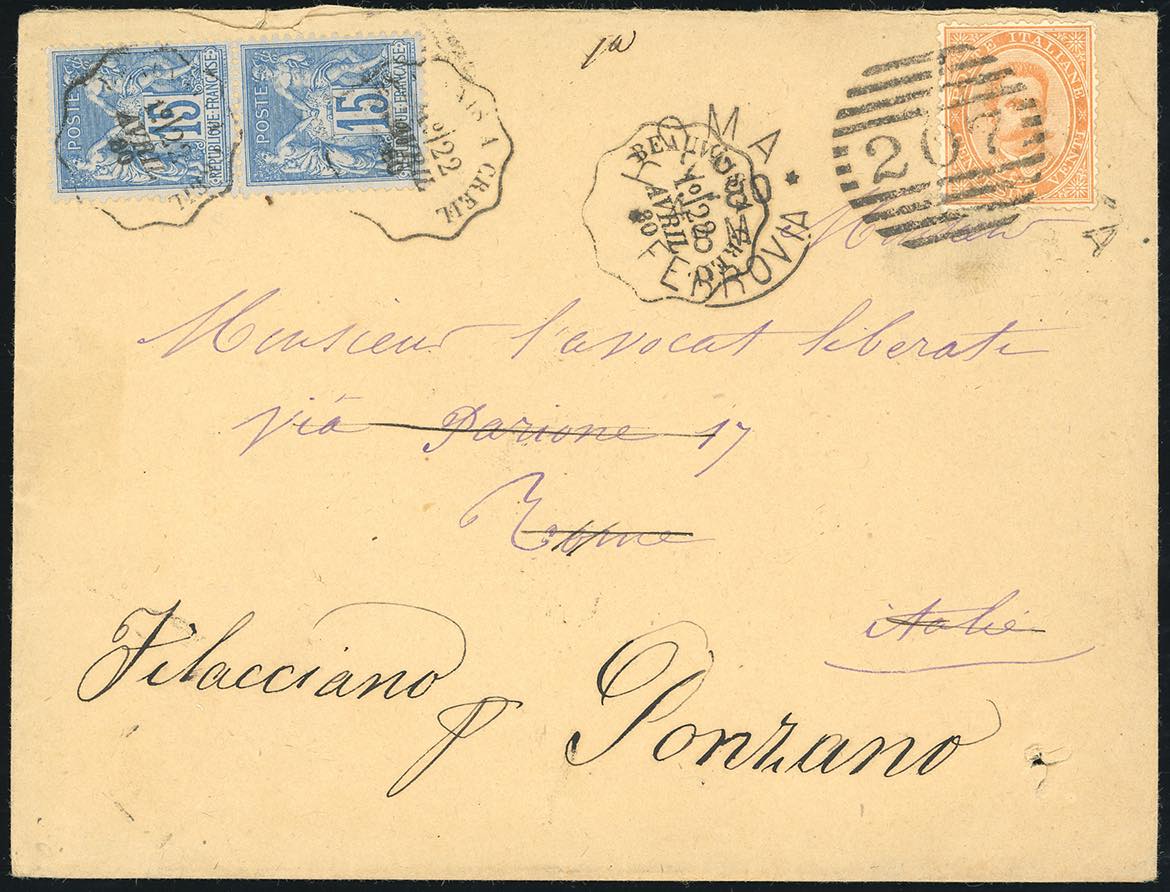 POSTE 15 RÉPUBLIQUE FRANÇAISE
POSTE 15 RÉPUBLIQUE FRANÇAISE
AVRIL
80
A CREIL
22
ROMA
FERROVIA
AVRIL
80
267
POSTE ITALIANE
VENTI
Monsieur
Monsieur l'avocat liberati
via Parione 17
Rome
italie
Filacciano
p Ponzano